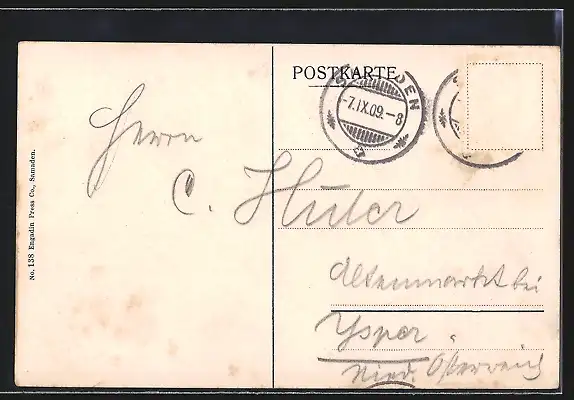 POSTKARTE
-7.IX.09.-8
Herrn
C. Huter
Altenmarkt bei
Ysper.
Nied. Österreich
No. 138 Engadin Press Co., Samaden.